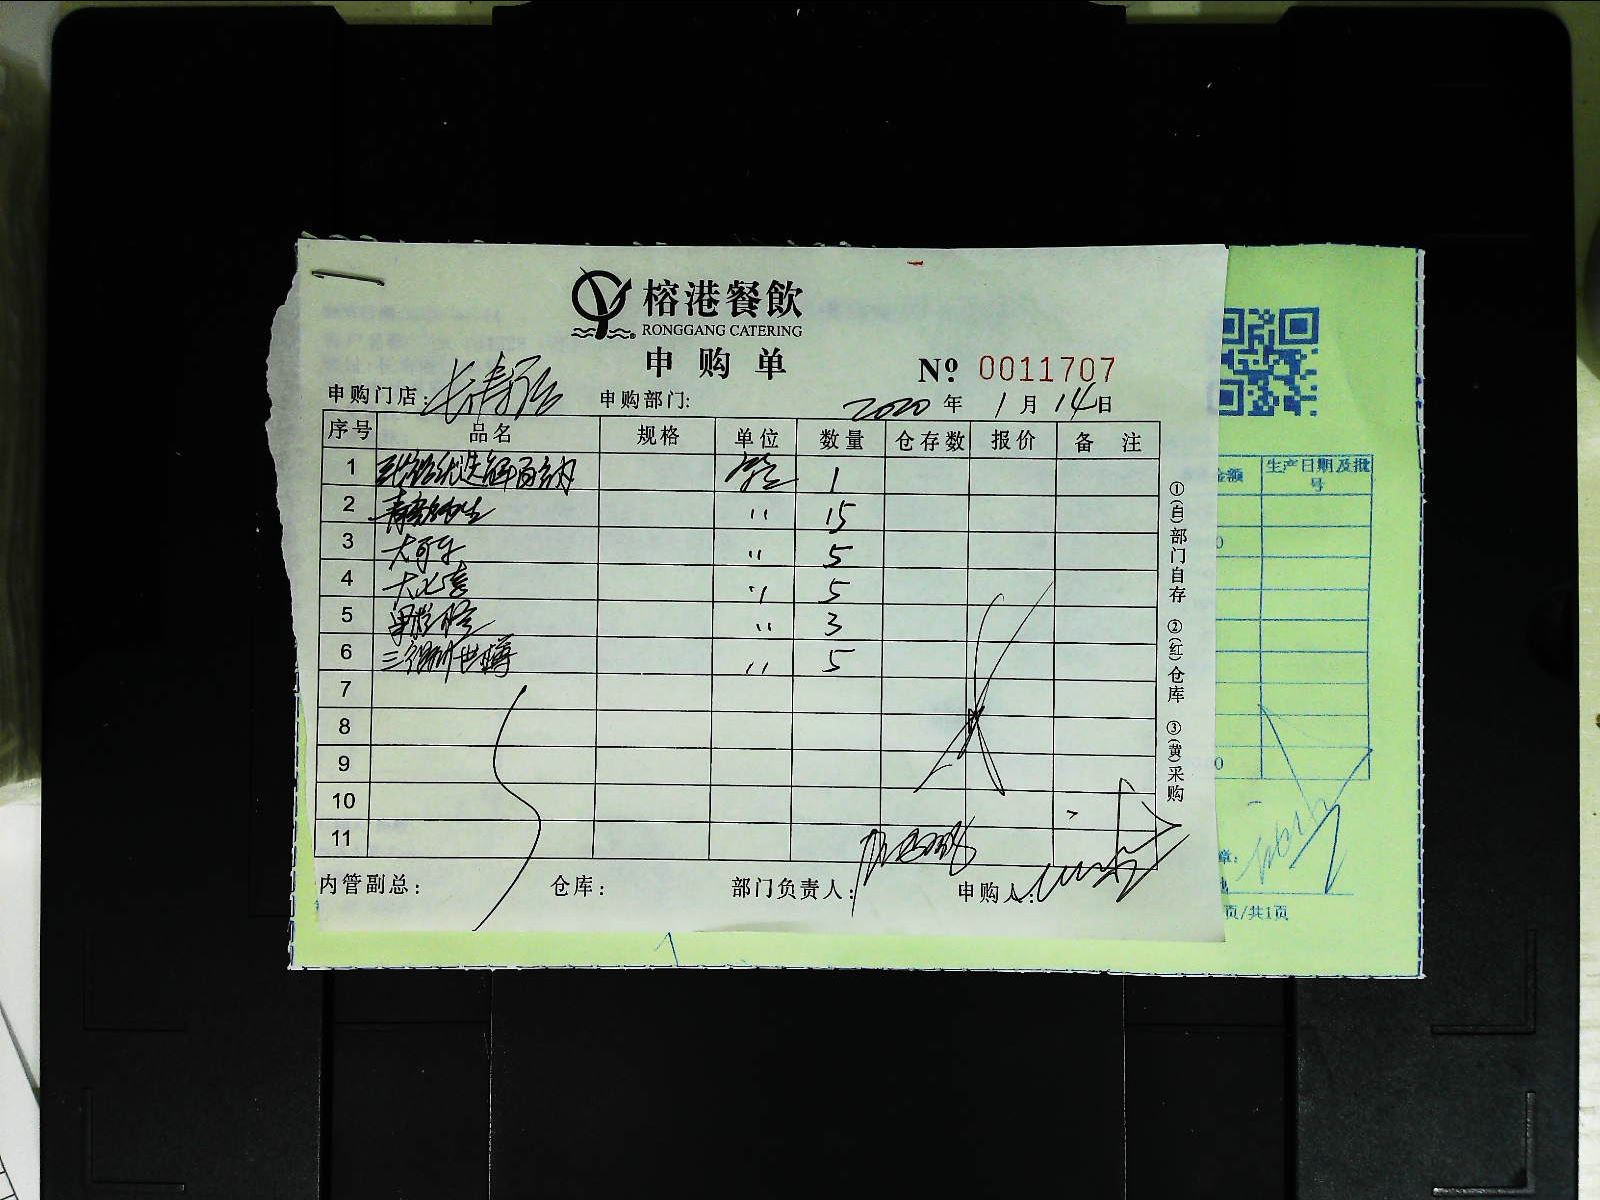 榕港餐飲
RONGGANG CATERING
申购单
№ 0011707
申购门店: 长寿路 申购部门: 2020年1月14日
序号 品名 规格 单位 数量 仓存数 报价 备注
1 优选解百纳 1
2 青岛纯生 〃 15
3 大可乐 〃 5
4 大七喜 〃 5
5 果粒橙 〃 3
6 〃 5
7
8
9
10
11
内管副总: 仓库: 部门负责人: 申购人:
①(白)部门自存 ②(红)仓库 ③(黄)采购
金额 生产日期及批号
页/共1页